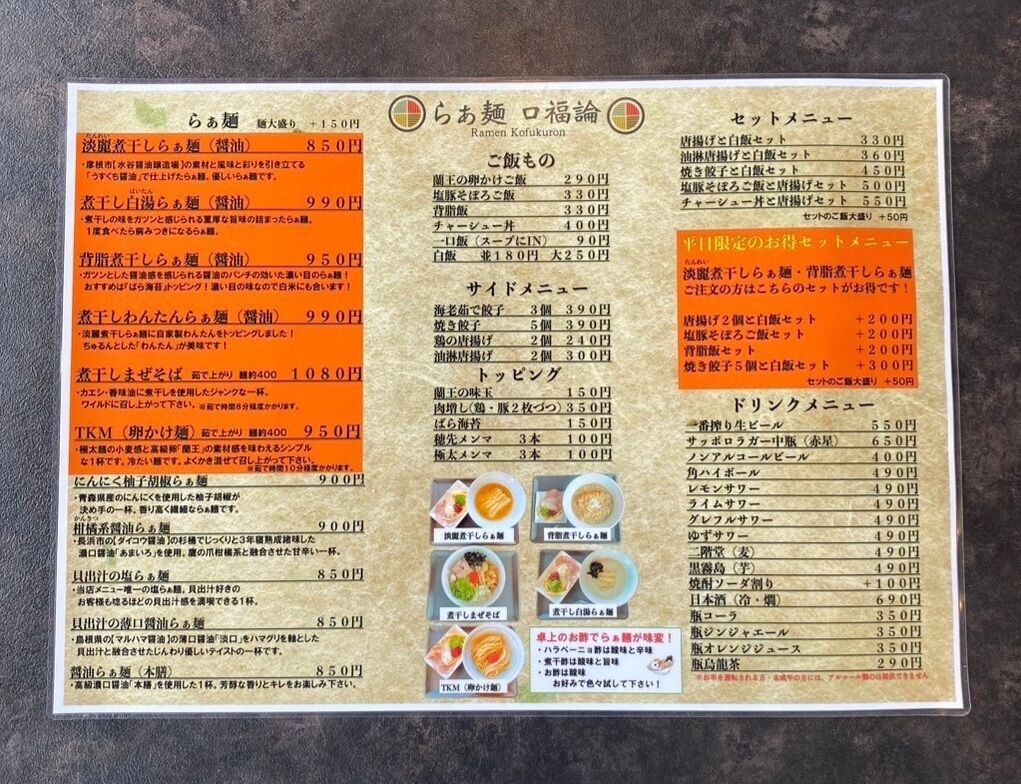 らぁ麺 口福論
Ramen Kofukuron
らぁ麺 麺大盛り +150円
たんれい
淡麗煮干しらぁ麺（醤油） 850円
・彦根市【水谷醤油醸造場】の素材と風味と彩りを引き立てる
「うすくち醤油」で仕上げたらぁ麺。優しいらぁ麺です。
ぱいたん
煮干し白湯らぁ麺（醤油） 990円
・煮干しの味をガツンと感じられる重厚な旨味の詰まったらぁ麺。
1度食べたら病みつきになるらぁ麺。
背脂煮干しらぁ麺（醤油） 950円
・ガツンとした醤油感を感じられる醤油のパンチの効いた濃い目のらぁ麺！
おすすめは「ばら海苔」トッピング！濃い目の味なので白米にも合います！
煮干しわんたんらぁ麺（醤油） 990円
・淡麗煮干しらぁ麺に自家製わんたんをトッピングしました！
ちゅるんとした「わんたん」が美味です！
煮干しまぜそば 茹で上がり 麺約400 1080円
・カエシ・香味油に煮干しを使用したジャンクな一杯。
ワイルドに召し上がって下さい。 ※茹で時間8分程度かかります。
TKM（卵かけ麺） 茹で上がり 麺約400 950円
・極太麺の小麦感と高級卵「蘭王」の素材感を味わえるシンプル
な1杯です。冷たい麺です。よくかき混ぜて召し上がって下さい。
※茹で時間10分程度かかります。
にんにく柚子胡椒らぁ麺 900円
・青森県産のにんにくを使用した柚子胡椒が
決め手の一杯。香り高く繊細ならぁ麺です。
かんきつ
柑橘系醤油らぁ麺 900円
・長浜市の【ダイコウ醤油】の杉桶でじっくりと3年寝熟成諸味した
濃口醤油「あまいろ」を使用。鷹の爪柑橘系と融合させた甘辛い一杯。
貝出汁の塩らぁ麺 850円
・当店メニュー唯一の塩らぁ麺。貝出汁好きの
お客様も唸るほどの貝出汁感を満喫できる1杯。
貝出汁の薄口醤油らぁ麺 850円
・島根県の【マルハマ醤油】の薄口醤油「淡口」をハマグリを軸とした
貝出汁と融合させたじんわり優しいテイストの一杯です。
醤油らぁ麺（本膳） 850円
・高級濃口醤油「本膳」を使用した1杯。芳醇な香りとキレをお楽しみ下さい。
ご飯もの
蘭王の卵かけご飯 290円
塩豚そぼろご飯 330円
背脂飯 330円
チャーシュー丼 400円
一口飯（スープにIN） 90円
白飯 並180円 大250円
サイドメニュー
海老茹で餃子 3個 390円
焼き餃子 5個 390円
鶏の唐揚げ 2個 240円
油淋唐揚げ 2個 300円
トッピング
蘭王の味玉 150円
肉増し（鶏・豚2枚づつ） 350円
ばら海苔 150円
穂先メンマ 3本 100円
極太メンマ 3本 100円
淡麗煮干しらぁ麺
背脂煮干しらぁ麺
煮干しまぜそば
煮干し白湯らぁ麺
TKM（卵かけ麺）
卓上のお酢でらぁ麺が味変！
・ハラペーニョ酢は酸味と辛味
・煮干酢は酸味と旨味
・お酢は酸味
お好みで色々試して下さい！
セットメニュー
唐揚げと白飯セット 330円
油淋唐揚げと白飯セット 360円
焼き餃子と白飯セット 450円
塩豚そぼろ飯と唐揚げセット 500円
チャーシュー丼と唐揚げセット 550円
セットのご飯大盛り +50円
平日限定のお得セットメニュー
たんれい
淡麗煮干しらぁ麺・背脂煮干しらぁ麺
ご注文の方はこちらのセットがお得です！
唐揚げ2個と白飯セット +200円
塩豚そぼろ飯セット +200円
背脂飯セット +200円
焼き餃子5個と白飯セット +300円
セットのご飯大盛り +50円
ドリンクメニュー
一番搾り生ビール 550円
サッポロラガー中瓶（赤星） 650円
ノンアルコールビール 400円
角ハイボール 490円
レモンサワー 490円
ライムサワー 490円
グレフルサワー 490円
ゆずサワー 490円
二階堂（麦） 490円
黒霧島（芋） 490円
焼酎ソーダ割り +100円
日本酒（冷・燗） 690円
瓶コーラ 350円
瓶ジンジャエール 350円
瓶オレンジジュース 350円
瓶烏龍茶 290円
※お車を運転される方・未成年の方には、アルコール類のは提供できません